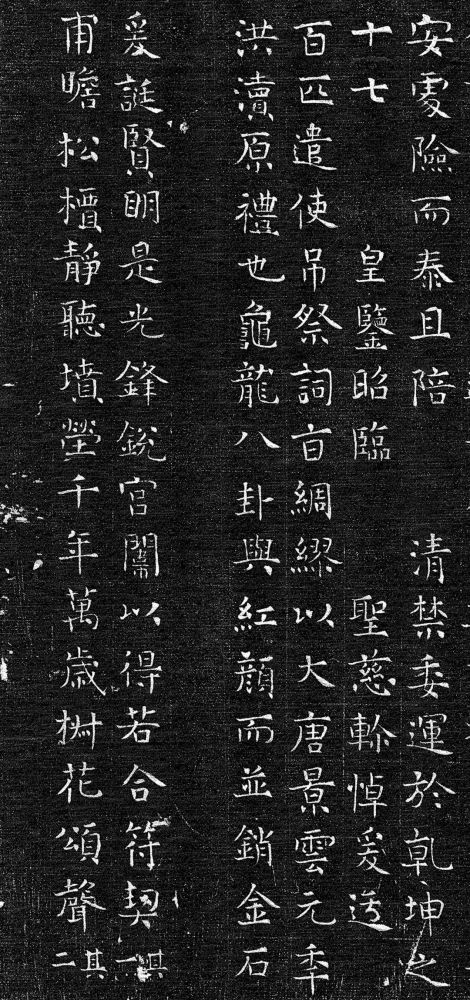 安處險而泰且陪　清禁委運於乾坤之
十七　皇鑒昭臨　聖慈軫悼爰送
百匹遣使吊祭詞旨綢繆以大唐景雲元年
洪瀆原禮也龜龍八卦與紅顏而並銷金石
爰誕賢明是光鋒銳宫闈以得若合符契其一
甫瞻松檟靜聽墳塋千年萬歲椒花頌聲其二